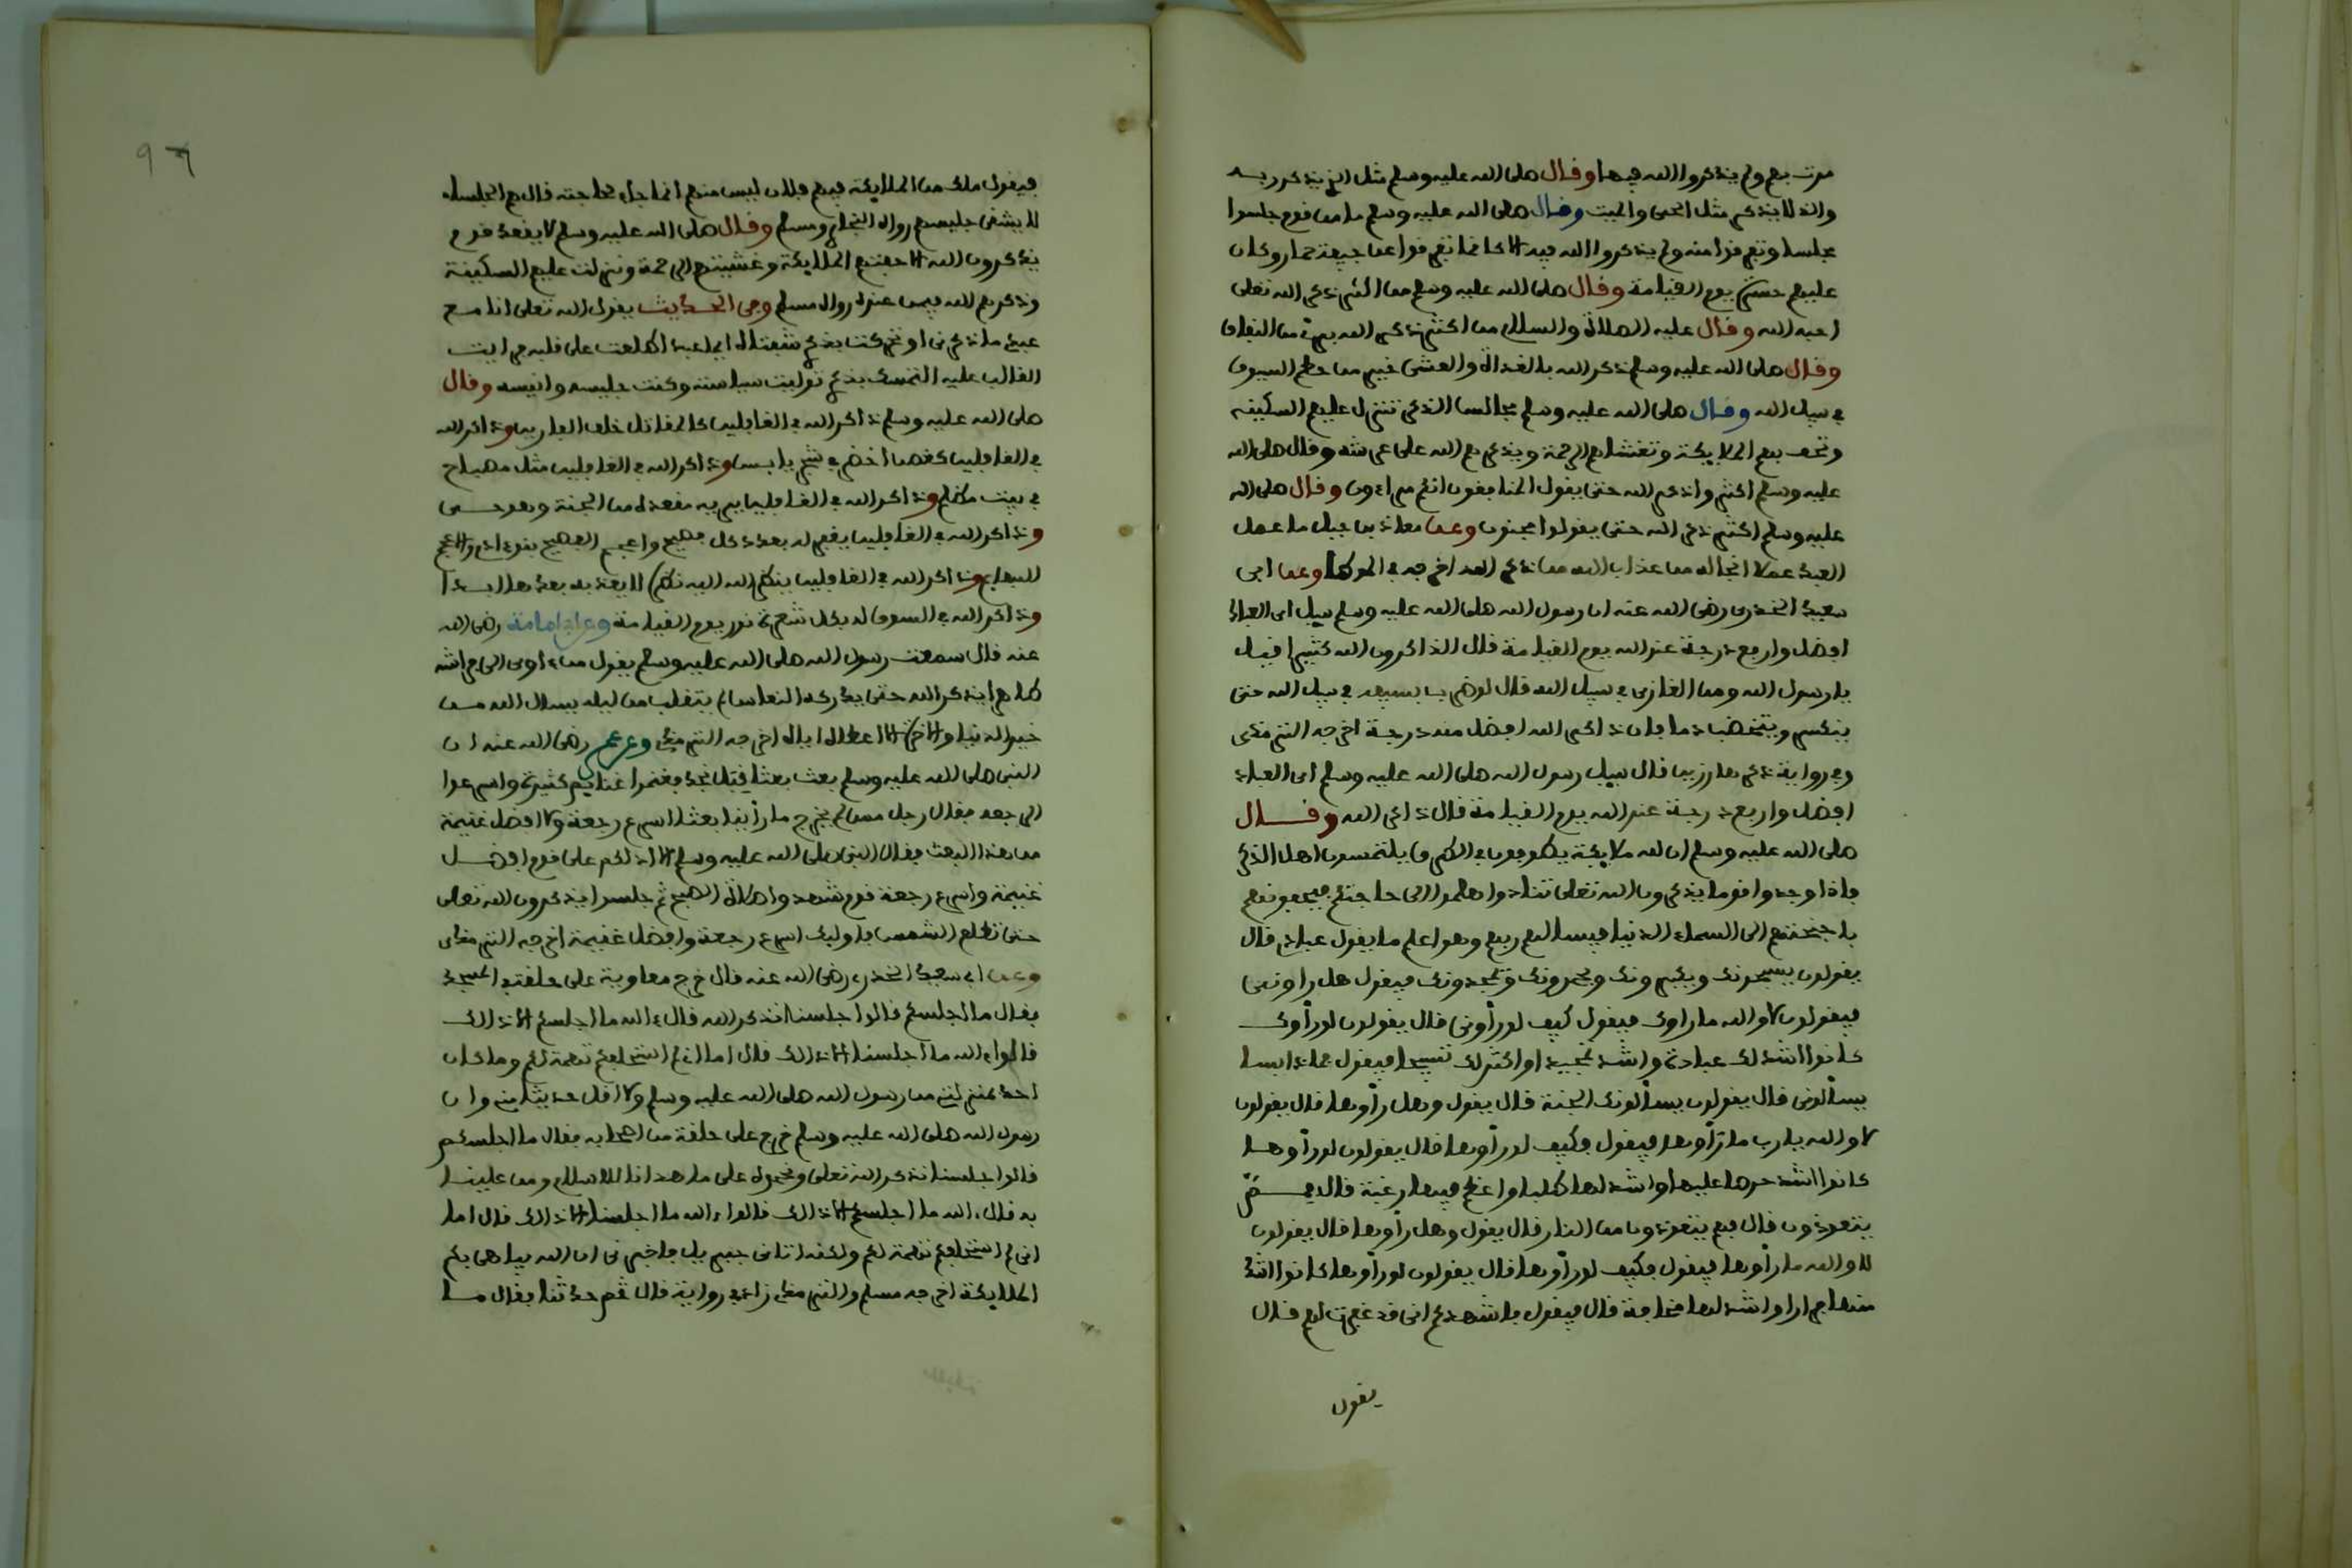 مرت بهم ولم يذكروا الله فيها وقال صلى الله عليه وسلم مثل الذي يذكر ربه
والذي لا يذكر مثل الحي والميت وقال صلى الله عليه وسلم ما من قوم جلسوا
مجلسا وتفرقوا منه ولم يذكروا الله فيه الا كانما تفرقوا عن جيفة حمار وكان
عليهم حسرة يوم القيامة وقال صلى الله عليه وسلم من اكثر ذكر الله تعلى
احبه الله وقال عليه الصلاة والسلام من اكثر ذكر الله برئ من النفاق
وقال صلى الله عليه وسلم ذكر الله بالغداة والعشي خير من حطم السيوف
في سبيل الله وقال صلى الله عليه وسلم مجالس الذكر تتنزل عليهم السكينة
وتحف بهم الملايكة وتغشاهم الرحمة ويذكرهم الله على عرشه وقال صلى الله
عليه وسلم اكثروا ذكر الله حتى يقول المنافقون انكم مراءون وقال صلى الله
عليه وسلم اكثروا ذكر الله حتى يقولوا مجنون وعن معاذ بن جبل ما عمل
العبد عملا انجا له من عذاب الله من ذكر الله اخرجه في الموطا وعن ابي
سعيد الخدري رضي الله عنه ان رسول الله صلى الله عليه وسلم سيل اي العباد
افضل وارفع درجة عند الله يوم القيامة قال الذاكرون الله كثيرا قيل
يا رسول الله ومن الغازي في سبيل الله قال لو ضرب بسيفه في سبيل الله حتى
ينكسر ويتخضب دما فان ذاكر الله افضل منه درجة اخرجه الترمذي
وفي رواية ذكرها رزين قال سيل رسول الله صلى الله عليه وسلم اي العباد
افضل وارفع درجة عند الله يوم القيامة قال ذاكر الله وقال
صلى الله عليه وسلم ان لله ملايكة يطوفون في الطرق يلتمسون اهل الذكر
فاذا وجدوا قوما يذكرون الله تعلى تنادوا هلموا الى حاجتكم فيحفونهم
باجنحتهم الى السماء الدنيا فيسالهم ربهم وهو اعلم ما يقول عبادي قال
يقولون يسبحونك ويكبرونك ويحمدونك ويمجدونك فيقول هل راوني
فيقولون لا والله ما راوك فيقول كيف لو رأوني قال يقولون لو رأوك
كانوا اشد لك عبادة واشد تمجيدا واكثر لك تسبيحا فيقول فماذا
يسألوني قال يقولون يسألونك الجنة قال يقول وهل رأوها قال يقولون
لا والله يا رب ما رأوها فيقول فكيف لو رأوها قال يقولون لو رأوها
كانوا اشد حرصا عليها واشد لها طلبا واعظم فيها رغبة قال فمم
يتعوذون قال فهم يتعوذون من النار قال يقول وهل رأوها قال يقولون
لا والله ما رأوها فيقول فكيف لو رأوها قال يقولون لو رأوها كانوا اشد
منها فرارا واشد لها مخافة قال فيقول فاشهدكم اني قد غفرت لهم قال
يقول
٩٦
فيقول ملك من الملايكة فيهم فلان ليس منهم انما جاء لحاجته قال هم الجلساء
لا يشقى جليسهم رواه البخاري ومسلم وقال صلى الله عليه وسلم لا يقعد قوم
يذكرون الله الا حفتهم الملايكة وغشيتهم الرحمة ونزلت عليهم السكينة
وذكرهم الله فيمن عنده رواه مسلم وفي الحديث يقول الله تعلى انا مع
عبدي ما ذكرني وتحركت بي شفتاه ايما عبد اطلعت على قلبه فرايت
الغالب عليه التمسك بذكري توليت سياسته وكنت جليسه وانيسه وقال
صلى الله عليه وسلم ذاكر الله في الغافلين كالمقاتل خلف الفارين وذاكر الله
في الغافلين كغصن اخضر في شجر يابس وذاكر الله في الغافلين مثل مصباح
في بيت مظلم وذاكر الله في الغافلين يريه مقعده من الجنة وهو حي
وذاكر الله في الغافلين يغفر له بعدد كل فصيح واعجم الفصيح بنو ادم والاعجم
البهايم وذاكر الله في الغافلين ينظر الله اليه نظرة لا يعذبه بعدها ابدا
وذاكر الله في السوق له بكل شعرة نور يوم القيامة وعن ابي امامة رضي الله
عنه قال سمعت رسول الله صلى الله عليه وسلم يقول من اوى الى فراشه
طاهرا يذكر الله حتى يدركه النعاس لم يتقلب من ليله يسال الله من
خير الدنيا والاخرة الا اعطاه اياه اخرجه الترمذي وعن عمر رضي الله عنه ان
النبي صلى الله عليه وسلم بعث بعثا قبل نجد فغنموا غنايم كثيرة واسرعوا
الرجعة فقال رجل ممن لم يخرج ما رأينا بعثا اسرع رجعة ولا افضل غنيمة
من هذا البعث فقال النبي صلى الله عليه وسلم الا ادلكم على قوم افضل
غنيمة واسرع رجعة قوم شهدوا صلاة الصبح ثم جلسوا يذكرون الله تعلى
حتى تطلع الشمس فاوليك اسرع رجعة وافضل غنيمة اخرجه الترمذي
وعن ابي سعيد الخدري رضي الله عنه قال خرج معاوية على حلقة في المسجد
فقال ما اجلسكم قالوا جلسنا نذكر الله قال ءالله ما اجلسكم الا ذلك
قالوا ءالله ما اجلسنا الا ذلك قال اما اني لم استحلفكم تهمة لكم وما كان
احد بمنزلتي من رسول الله صلى الله عليه وسلم ولا اقل حديثا مني وان
رسول الله صلى الله عليه وسلم خرج على حلقة من اصحابه فقال ما اجلسكم
قالوا جلسنا نذكر الله تعلى ونحمده على ما هدانا للاسلام ومن علينا
به قال ءالله ما اجلسكم الا ذلك قالوا ءالله ما اجلسنا الا ذلك قال اما
اني لم استحلفكم تهمة لكم ولكنه اتاني جبريل فاخبرني ان الله يباهي بكم
الملايكة اخرجه مسلم والترمذي زاد في رواية قال ثم حدثنا فقال ما